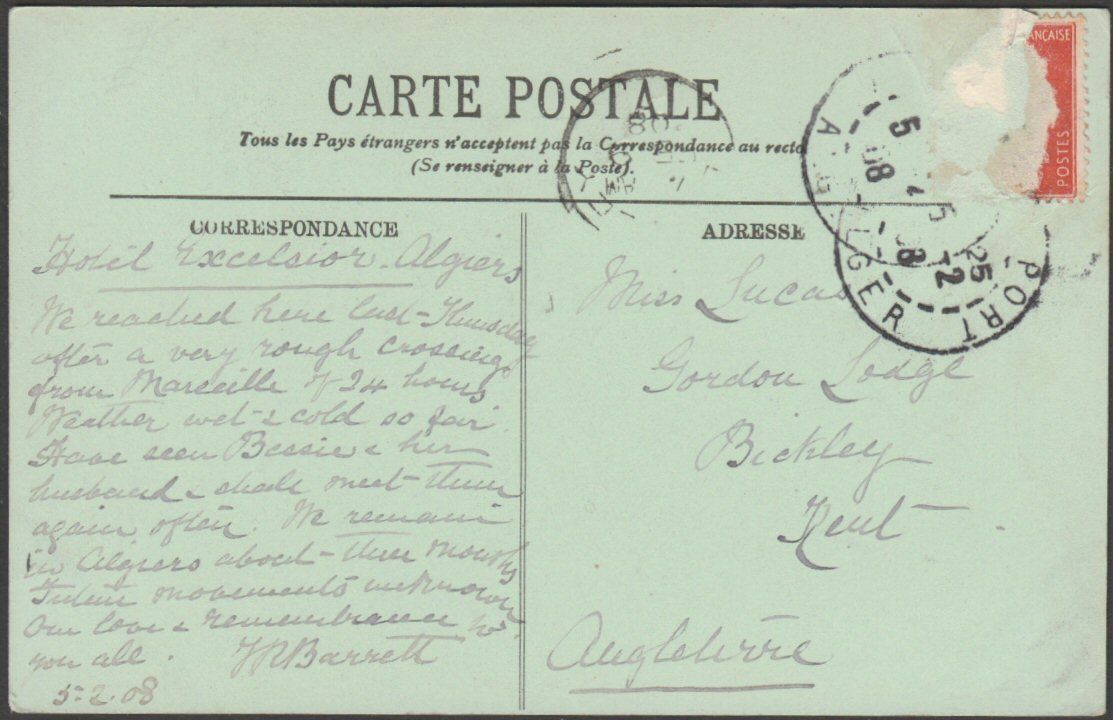 CARTE POSTALE
Tous les Pays étrangers n'acceptent pas la Correspondance au recto
(Se renseigner à la Poste).
CORRESPONDANCE
Hotel Excelsior. Algiers
We reached here last Thursday
after a very rough crossing
from Marseille of 24 hours
Weather wet & cold so far.
Have seen Bessie & her
husband & shall meet them
again often. We remain
in Algiers about three months
Future movements unknown
Our love & remembrance to
you all. Barrett
5-2.08
ADRESSE
Miss Lucas
Gordon Lodge
Bickley
Kent.
Angleterre
ANÇAISE
POSTES
5
08
ALGER
25
5 - 2
08
PORT